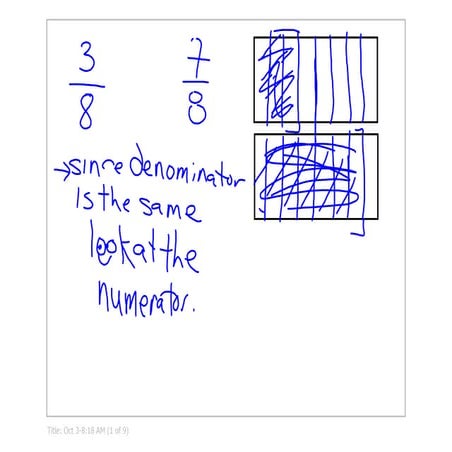 3/8 7/8
→since denominator
is the same
look at the
numerator.
Title: Oct 3-8:18 AM (1 of 9)